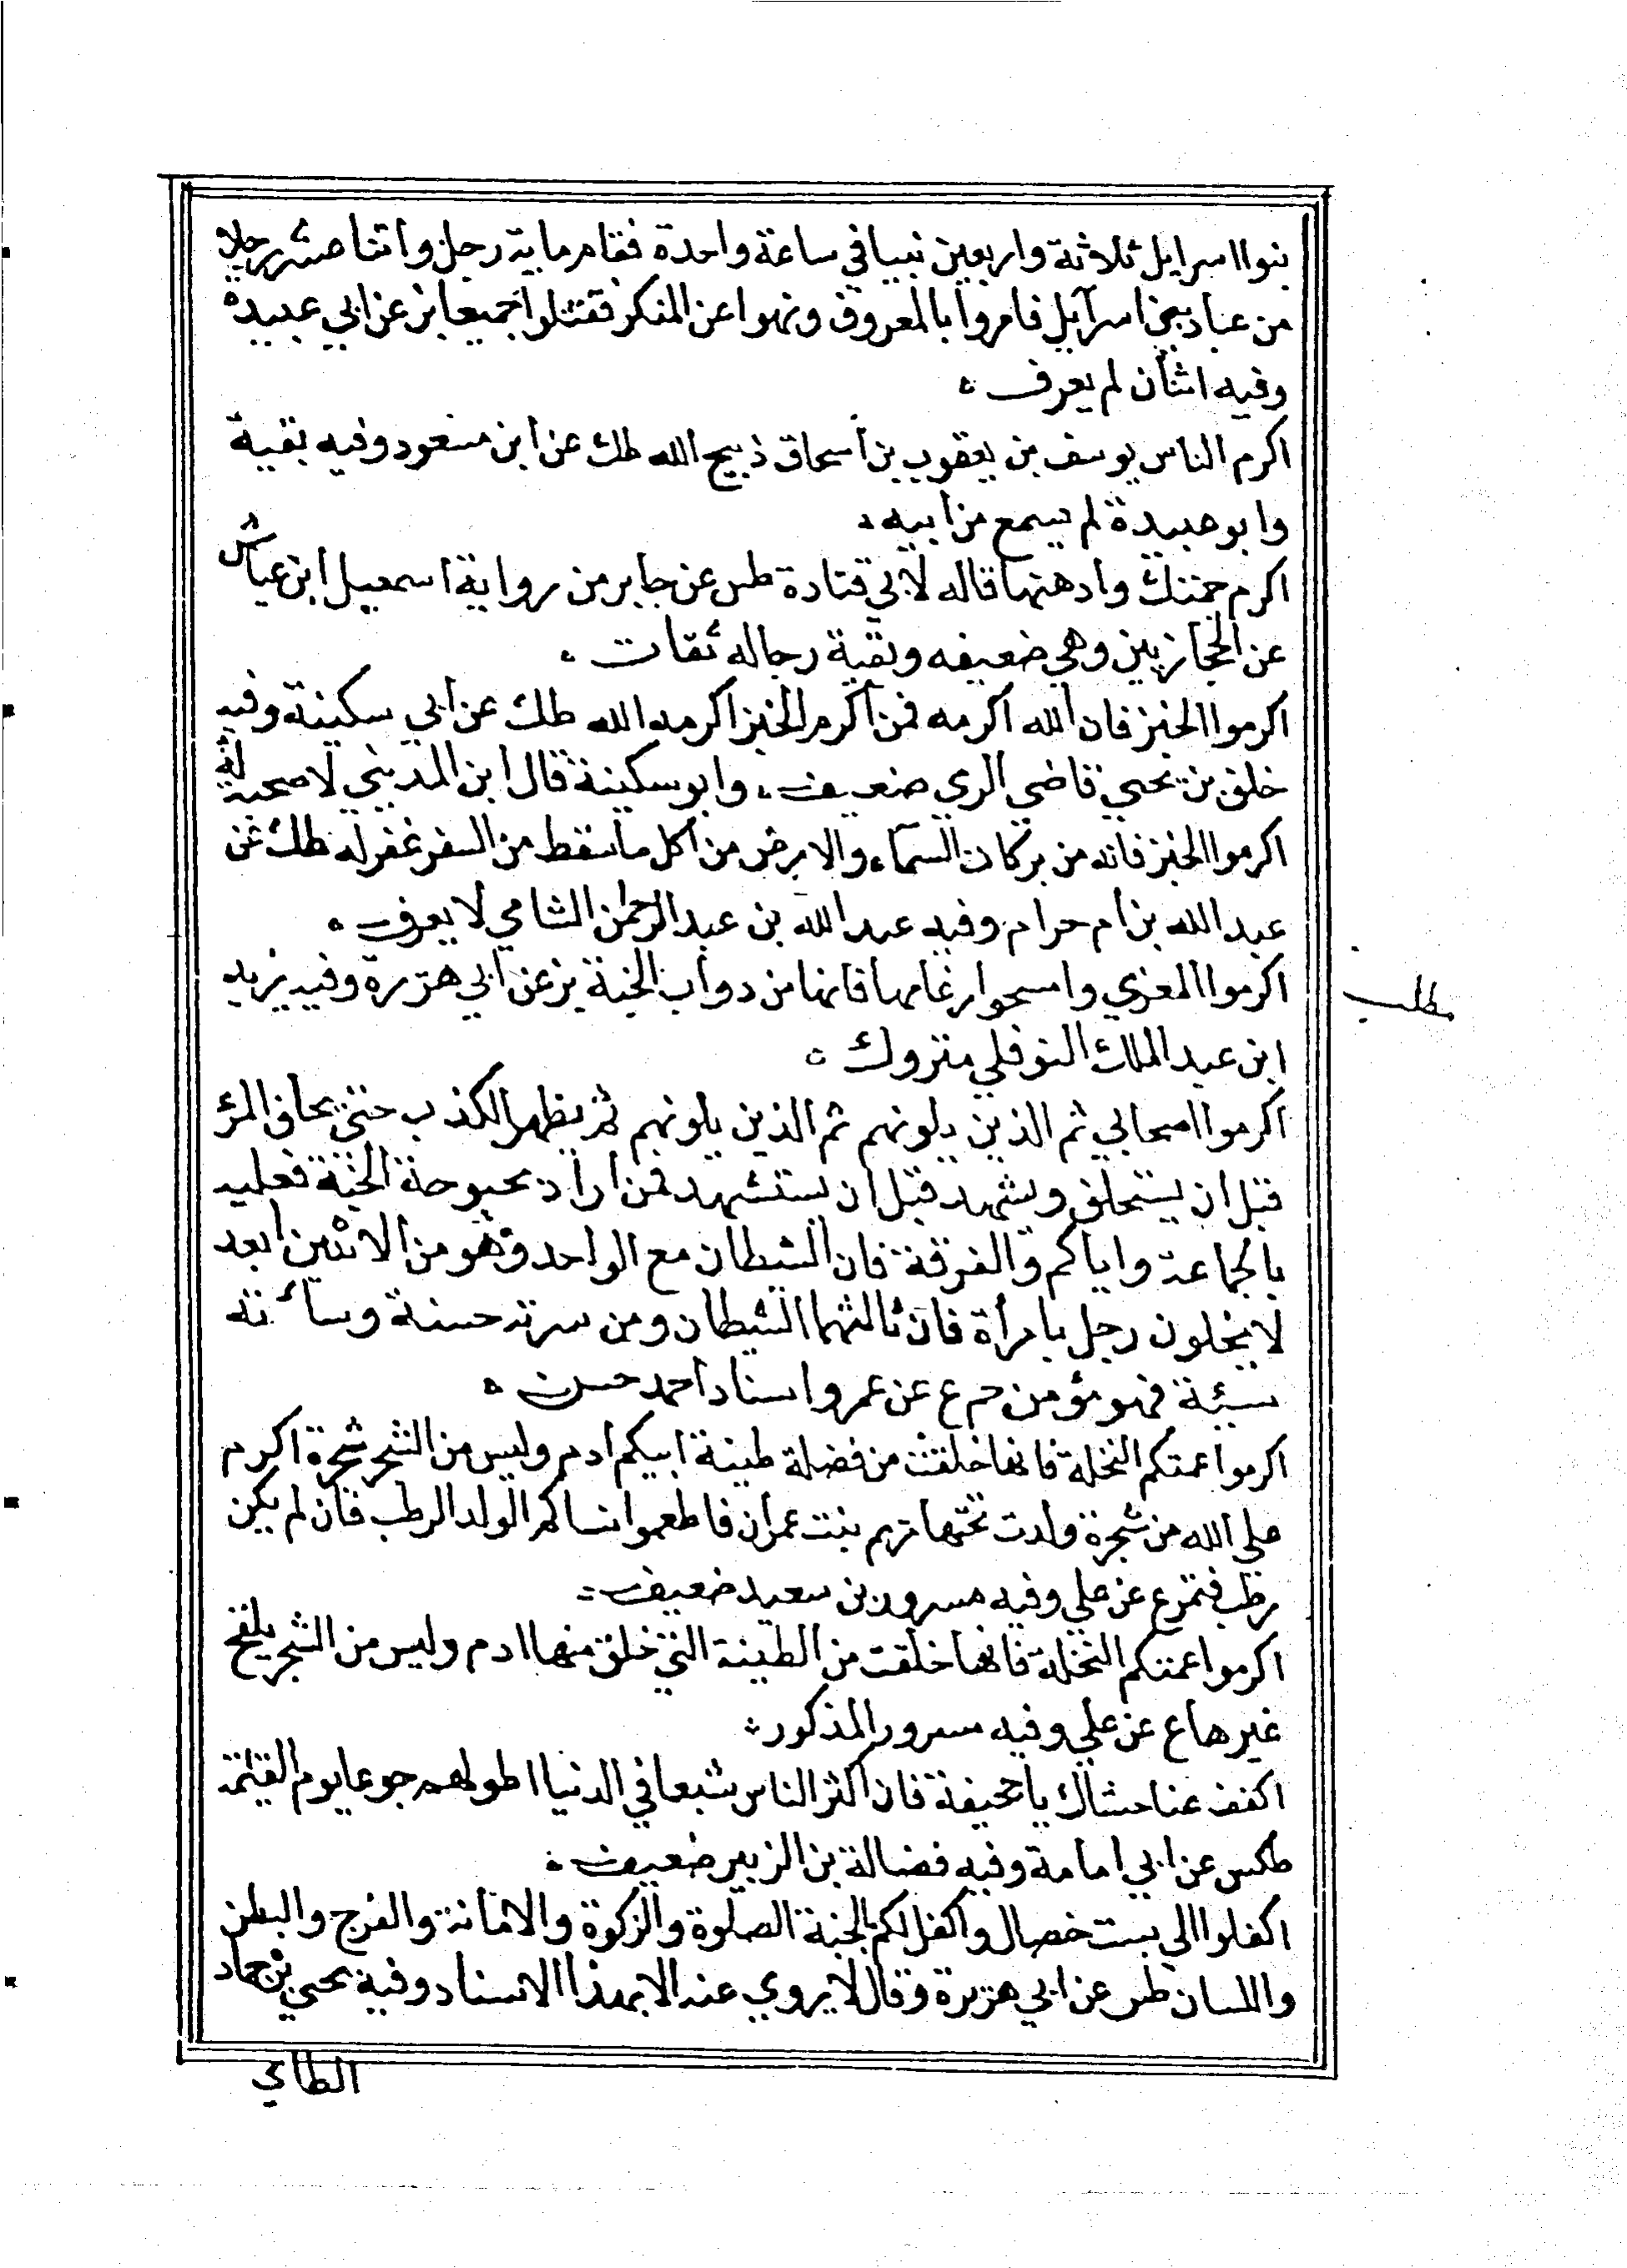 بنوا اسرايل ثلاثة واربعين نبيا في ساعة واحدة فقام ماية رجل واثنا عشر رجلا
من عباد بني اسرآيل فامروا بالمعروف ونهوا عن المنكر فقتلوا جميعا بز عن ابي عبيدة
وفيه اثنان لم يعرف
اكرم الناس يوسف بن يعقوب بن اسحاق ذبيح الله طك عن ابن مسعود وفيه بقية
وابو عبيدة لم يسمع من ابيه
اكرم جمتك وادهنها قاله لابي قتادة طس عن جابر من رواية اسمعيل ابن عياش
عن الحجازيين وهي ضعيفه وبقية رجاله ثقات
اكرموا الخبز فان الله اكرمه فمن اكرم الخبز اكرمه الله طك عن ابي سكينة وفيه
خلف بن يحيى قاضي الري ضعيف وابو سكينة قال ابن المديني لا صحبة له
اكرموا الخبز فانه من بركات السماء والارض من اكل ما سقط من السفر غفر له طك عن
عبد الله بن ام حرام وفيه عبد الله بن عبد الرحمن الشامي لا يعرف
اكرموا المعزي وامسحوا رغامها فانها من دواب الجنة بز عن ابي هريرة وفيه يزيد
مطلب
ابن عبد الملك النوفلي متروك
اكرموا اصحابي ثم الذين يلونهم ثم الذين يلونهم ثم يظهر الكذب حتى يحلف المرء
قبل ان يستحلف ويشهد قبل ان يستشهد فمن اراد بحبوحة الجنة فعليه
بالجماعة واياكم والفرقة فان الشيطان مع الواحد وهو من الاثنين ابعد
لا يخلون رجل بامرأة فان ثالثهما الشيطان ومن سرته حسنة وساءته
سيئة فهو مؤمن حم ع عن عمر واسناد احمد حسن
اكرموا عمتكم النخلة فانها خلقت من فضلة طينة ابيكم ادم وليس من الشجر شجرة اكرم
على الله من شجرة ولدت تحتها مريم بنت عمران فاطعموا نساكم الولد الرطب فان لم يكن
رطب فتمر ع عن علي وفيه مسرور بن سعيد ضعيف
اكرموا عمتكم النخلة فانها خلقت من الطينة التي خلق منها ادم وليس من الشجر يلقح
غيرها ع عن علي وفيه مسرور المذكور
اكفف عنا حشاك يا جحيفة فان اكثر الناس شبعا في الدنيا اطولهم جوعا يوم القيمة
طكس عن ابي امامة وفيه فضالة بن الزبير ضعيف
اكفلوا لي بست خصال واكفل لكم بالجنة الصلوة والزكوة والامانة والفرج والبطن
واللسان طس عن ابي هريرة وقال لا يروي عنه الا بهذا الاسناد وفيه يحيى بن حماد
الطاي